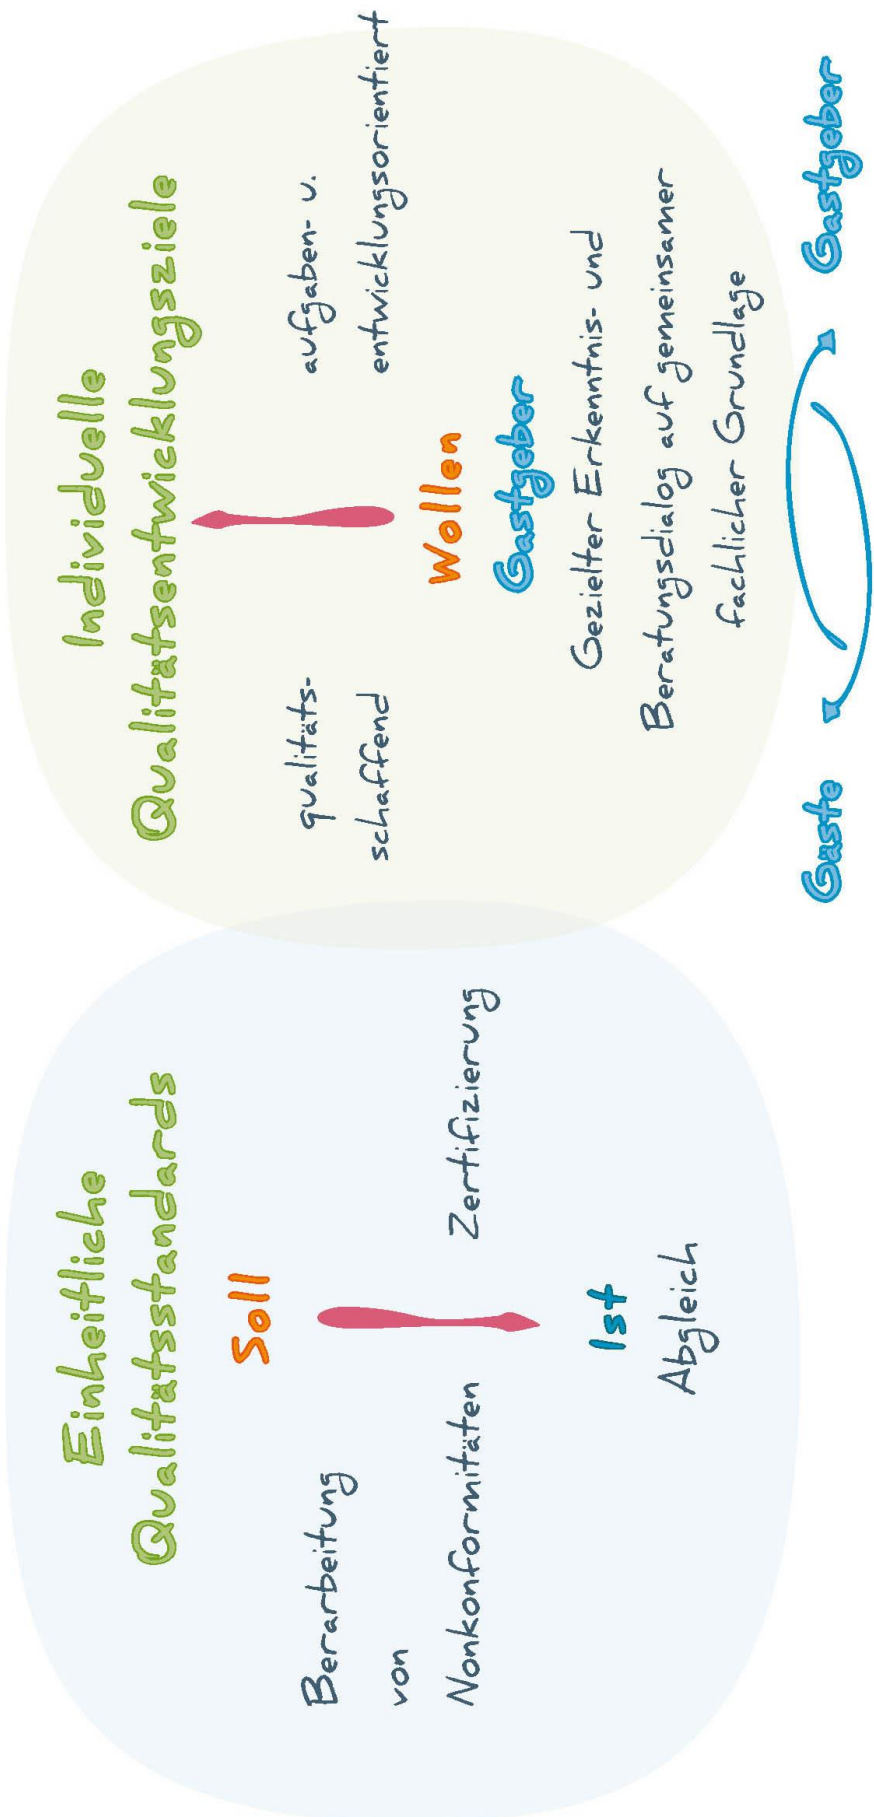 Einheitliche
Qualitätsstandards
Soll
Berarbeitung
von
Nonkonformitäten
Zertifizierung
Ist
Abgleich
Individuelle
Qualitätsentwicklungsziele
qualitäts-
schaffend
aufgaben- u.
entwicklungsorientiert
Wollen
Gastgeber
Gezielter Erkenntnis- und
Beratungsdialog auf gemeinsamer
fachlicher Grundlage
Gäste
Gastgeber